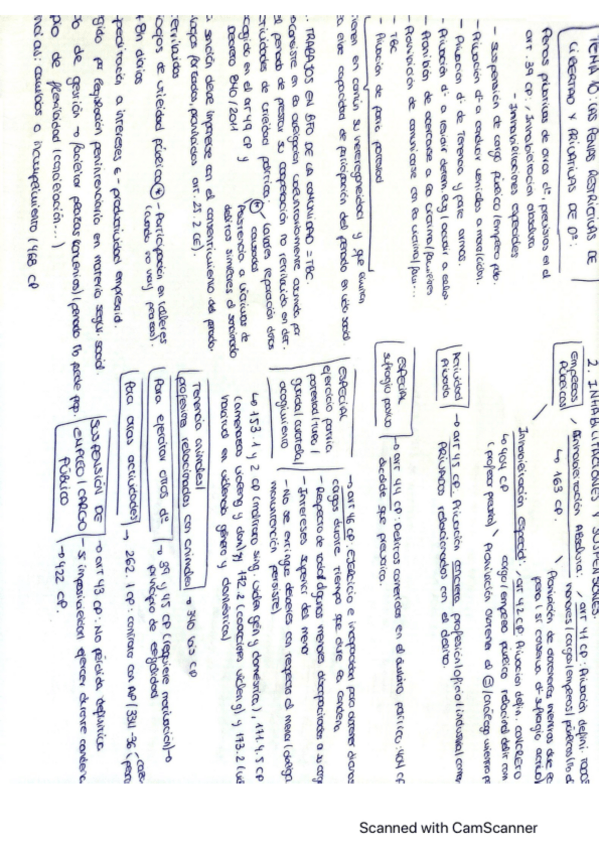 TEMA 10: LAS PENAS RESTRICTIVAS DE
LIBERTAD Y PRIVATIVAS DE Dº:
Penas privativas de otros dº, previstas en el
art. 39 CP: / Inhabilitación absoluta
- Inhabilitaciones especiales
- Suspensión de cargo público/empleo púb.
- Privación dº a conducir vehículos a motor/ciclos.
- Privación dº de Tenencia y porte armas.
- Privación dº a residir determ. lug/acudir a ellos
- Prohibición de acercarse a la víctima/familiares
- Prohibición de comunicarse con la víctima/fam...
- TBC
- Privación de patria potestad
tienen en común su heterogeneidad y que
la capacidad de participación del penado en vida social
TRABAJOS EN BFO DE LA COMUNIDAD = TBC.
consiste en la obligación voluntariamente asumida por
el penado de prestar su cooperación no retribuida en det.
actividades de utilidad pública: Labores reparación daños
causados
art 49 CP y
Decreto 840/2011
Asistencia a víctimas de
delitos similares al
sanción debe imponerse con el consentimiento del penado.
forzados, prohibidos art. 25.2 CE).
retribuidos
de utilidad pública - Participación en talleres
(cuando no haya proceso).
8h diarias
a intereses € - productividad empresarial.
legislación penitenciaria en materia segur. social.
de gestión → facilitar
pio de flexibilidad (conciliación...)
incumplimiento (468 CP
2. INHABILITACIONES Y SUSPENSIONES.
EMPLEOS
PÚBLICOS
Inhabilitación Absoluta: art 41 CP: Privación defini. todos
honores/cargos/empleos/públicos
↳ 163 CP.
Prohibición de obtenerlos mientras dure
pena (sí conserva dº sufragio activo)
Inhabilitación Especial: art 42 CP Privación defin. concreto
cargo/empleo público relacional delit com
↳ 404 CP
Prohibición obtener el
Actividad
Privada
→ art 45 CP Privación concreta profesión/oficio/industria/
PRIVADOS relacionados con el delito.
ESPECIAL
sufragio pasivo
→ art 44 CP: Delitos cometidos en el ámbito político: 404 CP
decide que prevarica.
ESPECIAL
ejercicio patria
potestad/tutela/
guarda/curatela/
acogimiento
→ art 46 CP: extinción e incapacidad para obtener dichos
cargos durante tiempo que dure la condena
- Respecto de todos/algunos menores discapacitados a su cargo
- Intereses superior del menor
- No se extingue deberes con respecto al menor (obliga
manutención persiste)
↳ 153.1 y 2 CP (maltrato sing. violen gén y doméstica), 171.4, 5 CP
(amenazas violeng y dom)y 172.2 (coacciones violeng) y 173.2
violencia género y doméstica)
Tenencia animales/
profesiones relacionadas con animales
→ 340 bis CP
Para ejercitar otros dº → 39 y 45 CP (requiere motivación) →
principio de legalidad
Para otras actividades → 262.1 CP: contrata con AP/334-36
SUSPENSIÓN DE
EMPLEO/CARGO
PÚBLICO
→ art 43 CP: No pérdida definitiva
sí imposibilitan ejercer durante condena
→ 422 CP.
Scanned with CamScanner